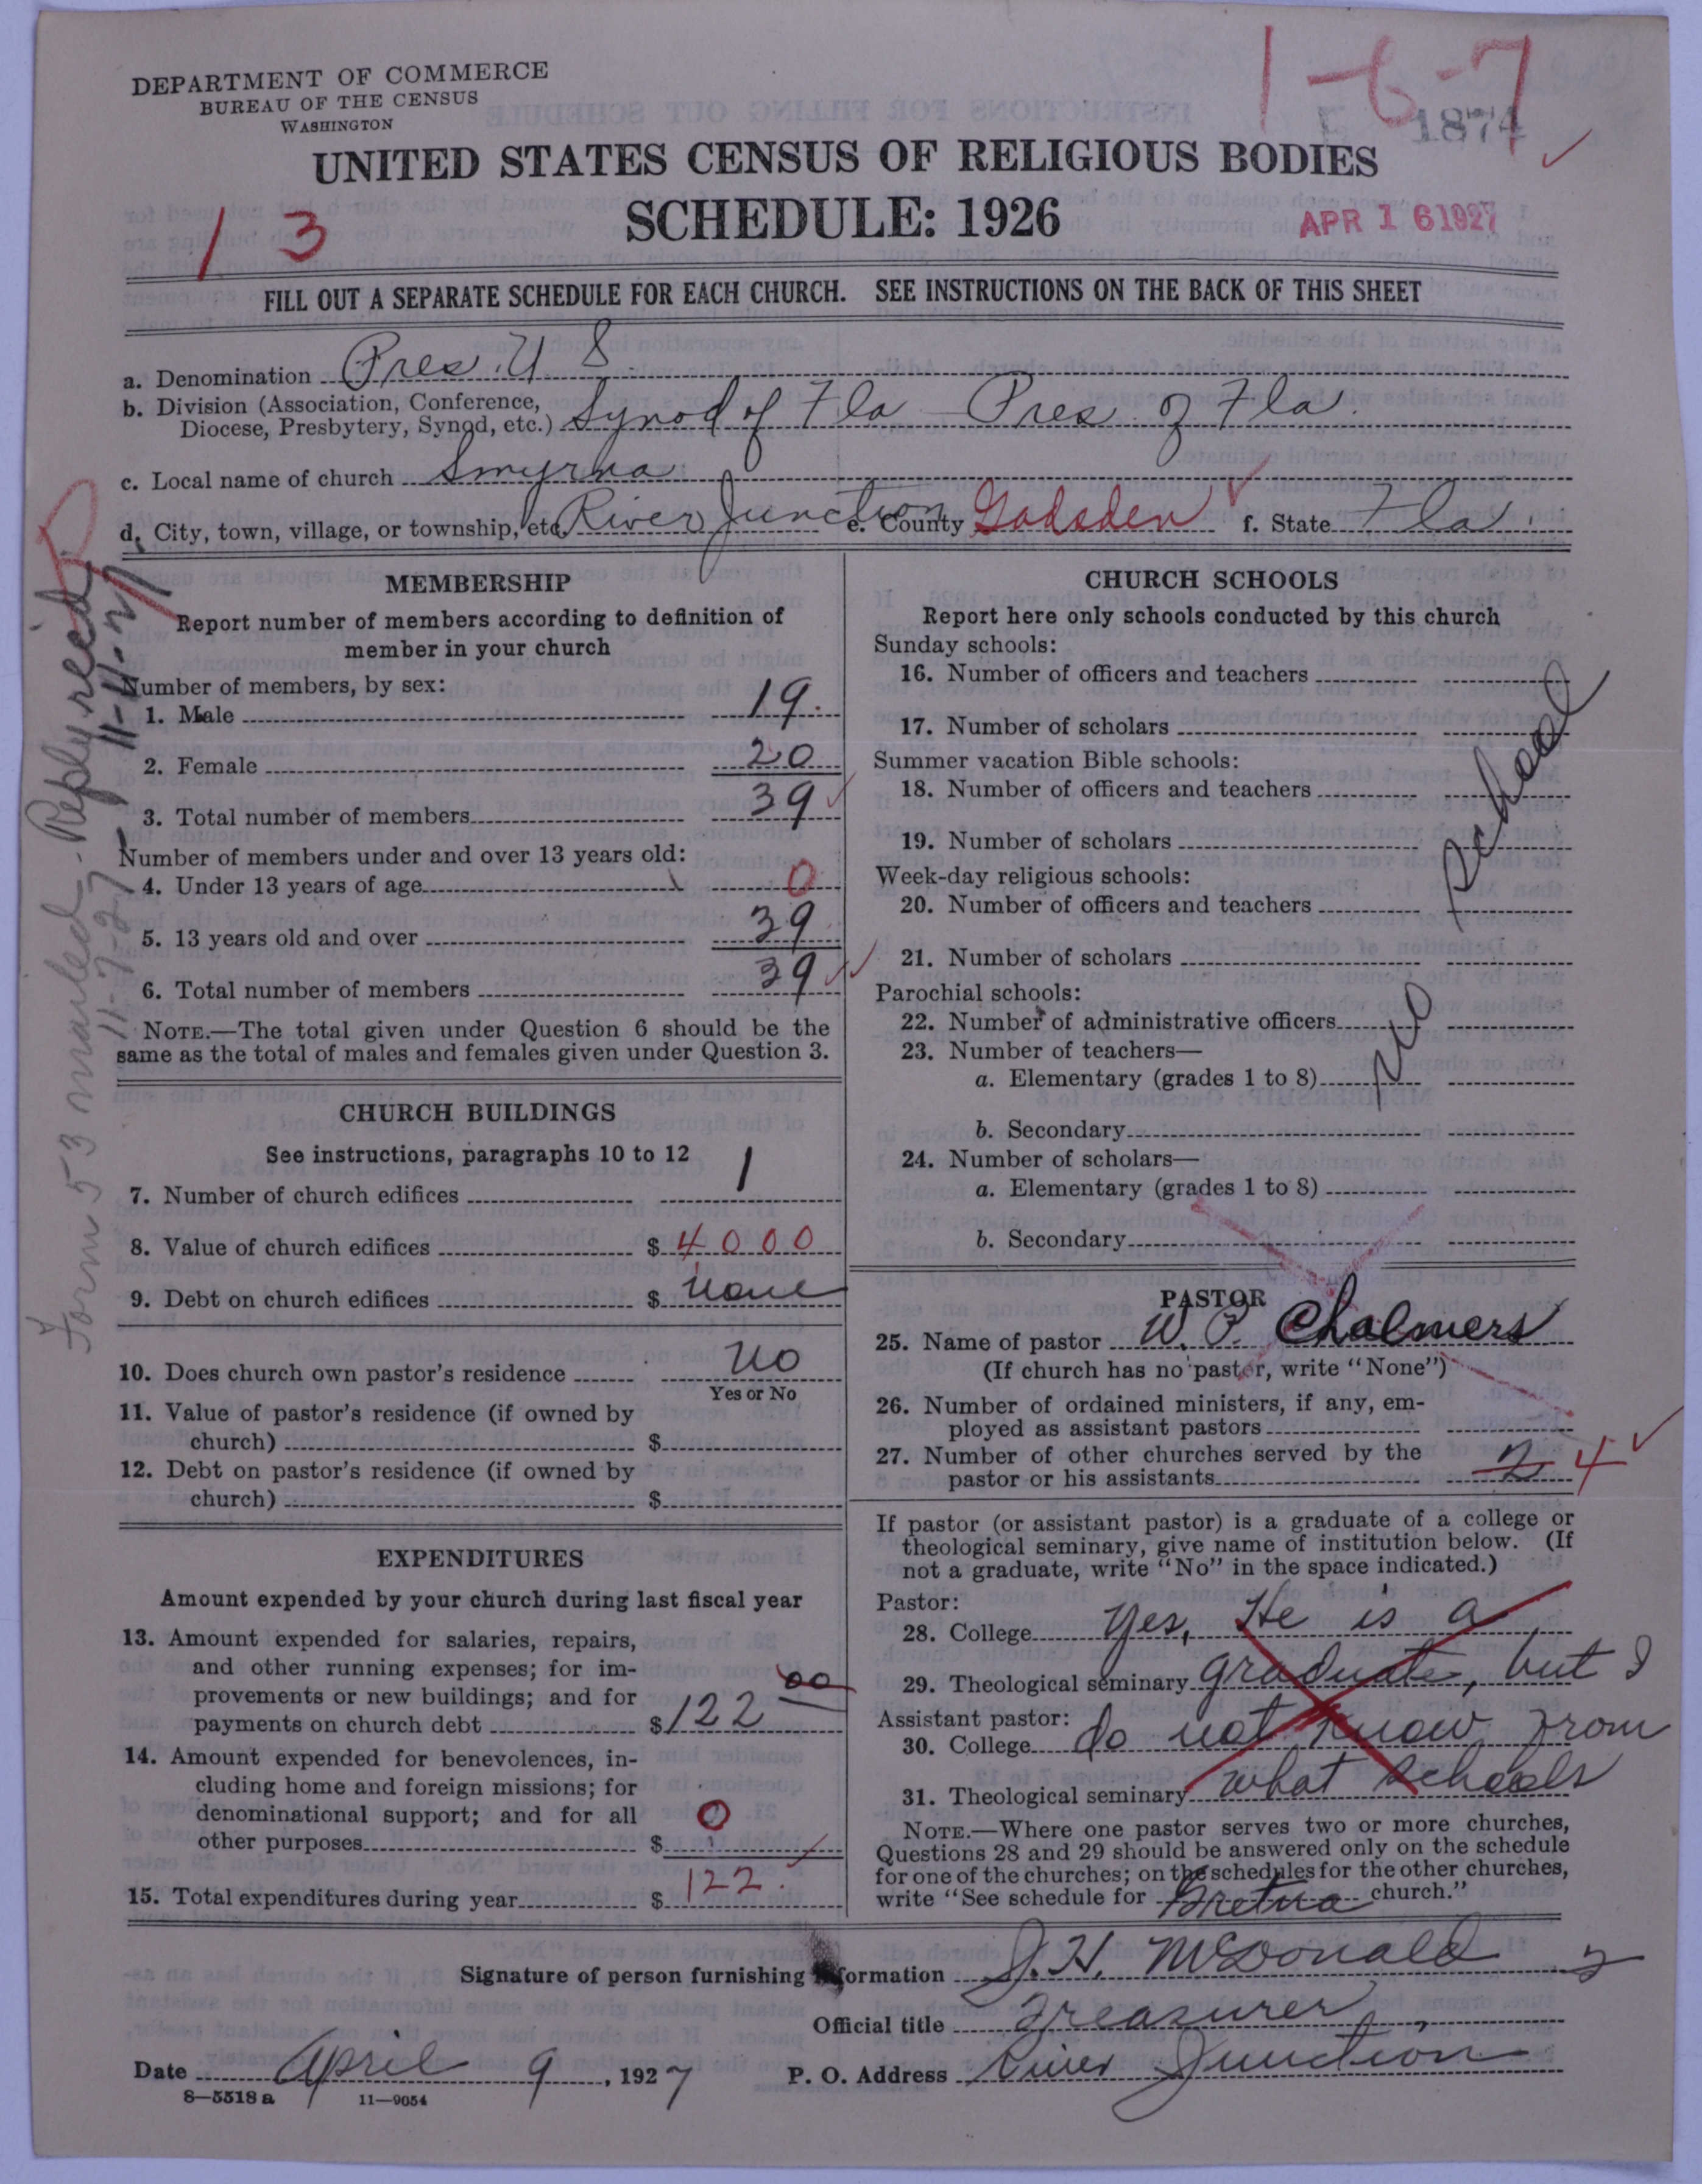 DEPARTMENT OF COMMERCE
BUREAU OF THE CENSUS
WASHINGTON
1-6-7
1874
UNITED STATES CENSUS OF RELIGIOUS BODIES
SCHEDULE: 1926
13
APR 16 1927
FILL OUT A SEPARATE SCHEDULE FOR EACH CHURCH. SEE INSTRUCTIONS ON THE BACK OF THIS SHEET
a. Denomination Pres. U S
b. Division (Association, Conference,
Diocese, Presbytery, Synod, etc.) Synod of Fla Pres. of Fla.
c. Local name of church Smyrna
d. City, town, village, or township, etc. River Junction e. County Gadsden f. State Fla.
Form 53 mailed - Reply rec'd
11-7-27 11-14-27
MEMBERSHIP
Report number of members according to definition of
member in your church
Number of members, by sex:
1. Male 19.
2. Female 20
3. Total number of members 39
Number of members under and over 13 years old:
4. Under 13 years of age 0
5. 13 years old and over 39
6. Total number of members 39
NOTE.—The total given under Question 6 should be the
same as the total of males and females given under Question 3.
CHURCH BUILDINGS
See instructions, paragraphs 10 to 12
7. Number of church edifices 1
8. Value of church edifices $ 4000
9. Debt on church edifices $ None
10. Does church own pastor's residence No
Yes or No
11. Value of pastor's residence (if owned by
church) $
12. Debt on pastor's residence (if owned by
church) $
EXPENDITURES
Amount expended by your church during last fiscal year
13. Amount expended for salaries, repairs,
and other running expenses; for im-
provements or new buildings; and for
payments on church debt $ 122 00
14. Amount expended for benevolences, in-
cluding home and foreign missions; for
denominational support; and for all
other purposes $ 0
15. Total expenditures during year $ 122.
CHURCH SCHOOLS
Report here only schools conducted by this church
Sunday schools:
16. Number of officers and teachers
17. Number of scholars
Summer vacation Bible schools:
18. Number of officers and teachers
19. Number of scholars
Week-day religious schools:
20. Number of officers and teachers
21. Number of scholars
Parochial schools:
22. Number of administrative officers
23. Number of teachers—
a. Elementary (grades 1 to 8)
b. Secondary
24. Number of scholars—
a. Elementary (grades 1 to 8)
b. Secondary
No School
PASTOR
25. Name of pastor W. P. Chalmers
(If church has no pastor, write "None")
26. Number of ordained ministers, if any, em-
ployed as assistant pastors
27. Number of other churches served by the
pastor or his assistants 2 4
If pastor (or assistant pastor) is a graduate of a college or
theological seminary, give name of institution below. (If
not a graduate, write "No" in the space indicated.)
Pastor:
28. College Yes, He is a
29. Theological seminary graduate, but I
Assistant pastor:
30. College do not know from
31. Theological seminary what schools
NOTE.—Where one pastor serves two or more churches,
Questions 28 and 29 should be answered only on the schedule
for one of the churches; on the schedules for the other churches,
write "See schedule for Gretna church."
Signature of person furnishing information J. H. McDonald
Official title Treasurer,
Date April 9, 1927 P. O. Address River Junction
8—5518 a 11—9054